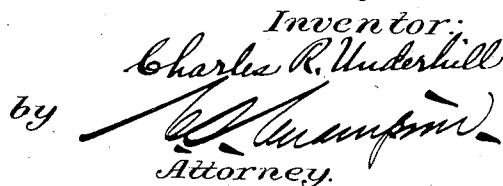 Inventor:
Charles R. Underhill
by
Attorney.